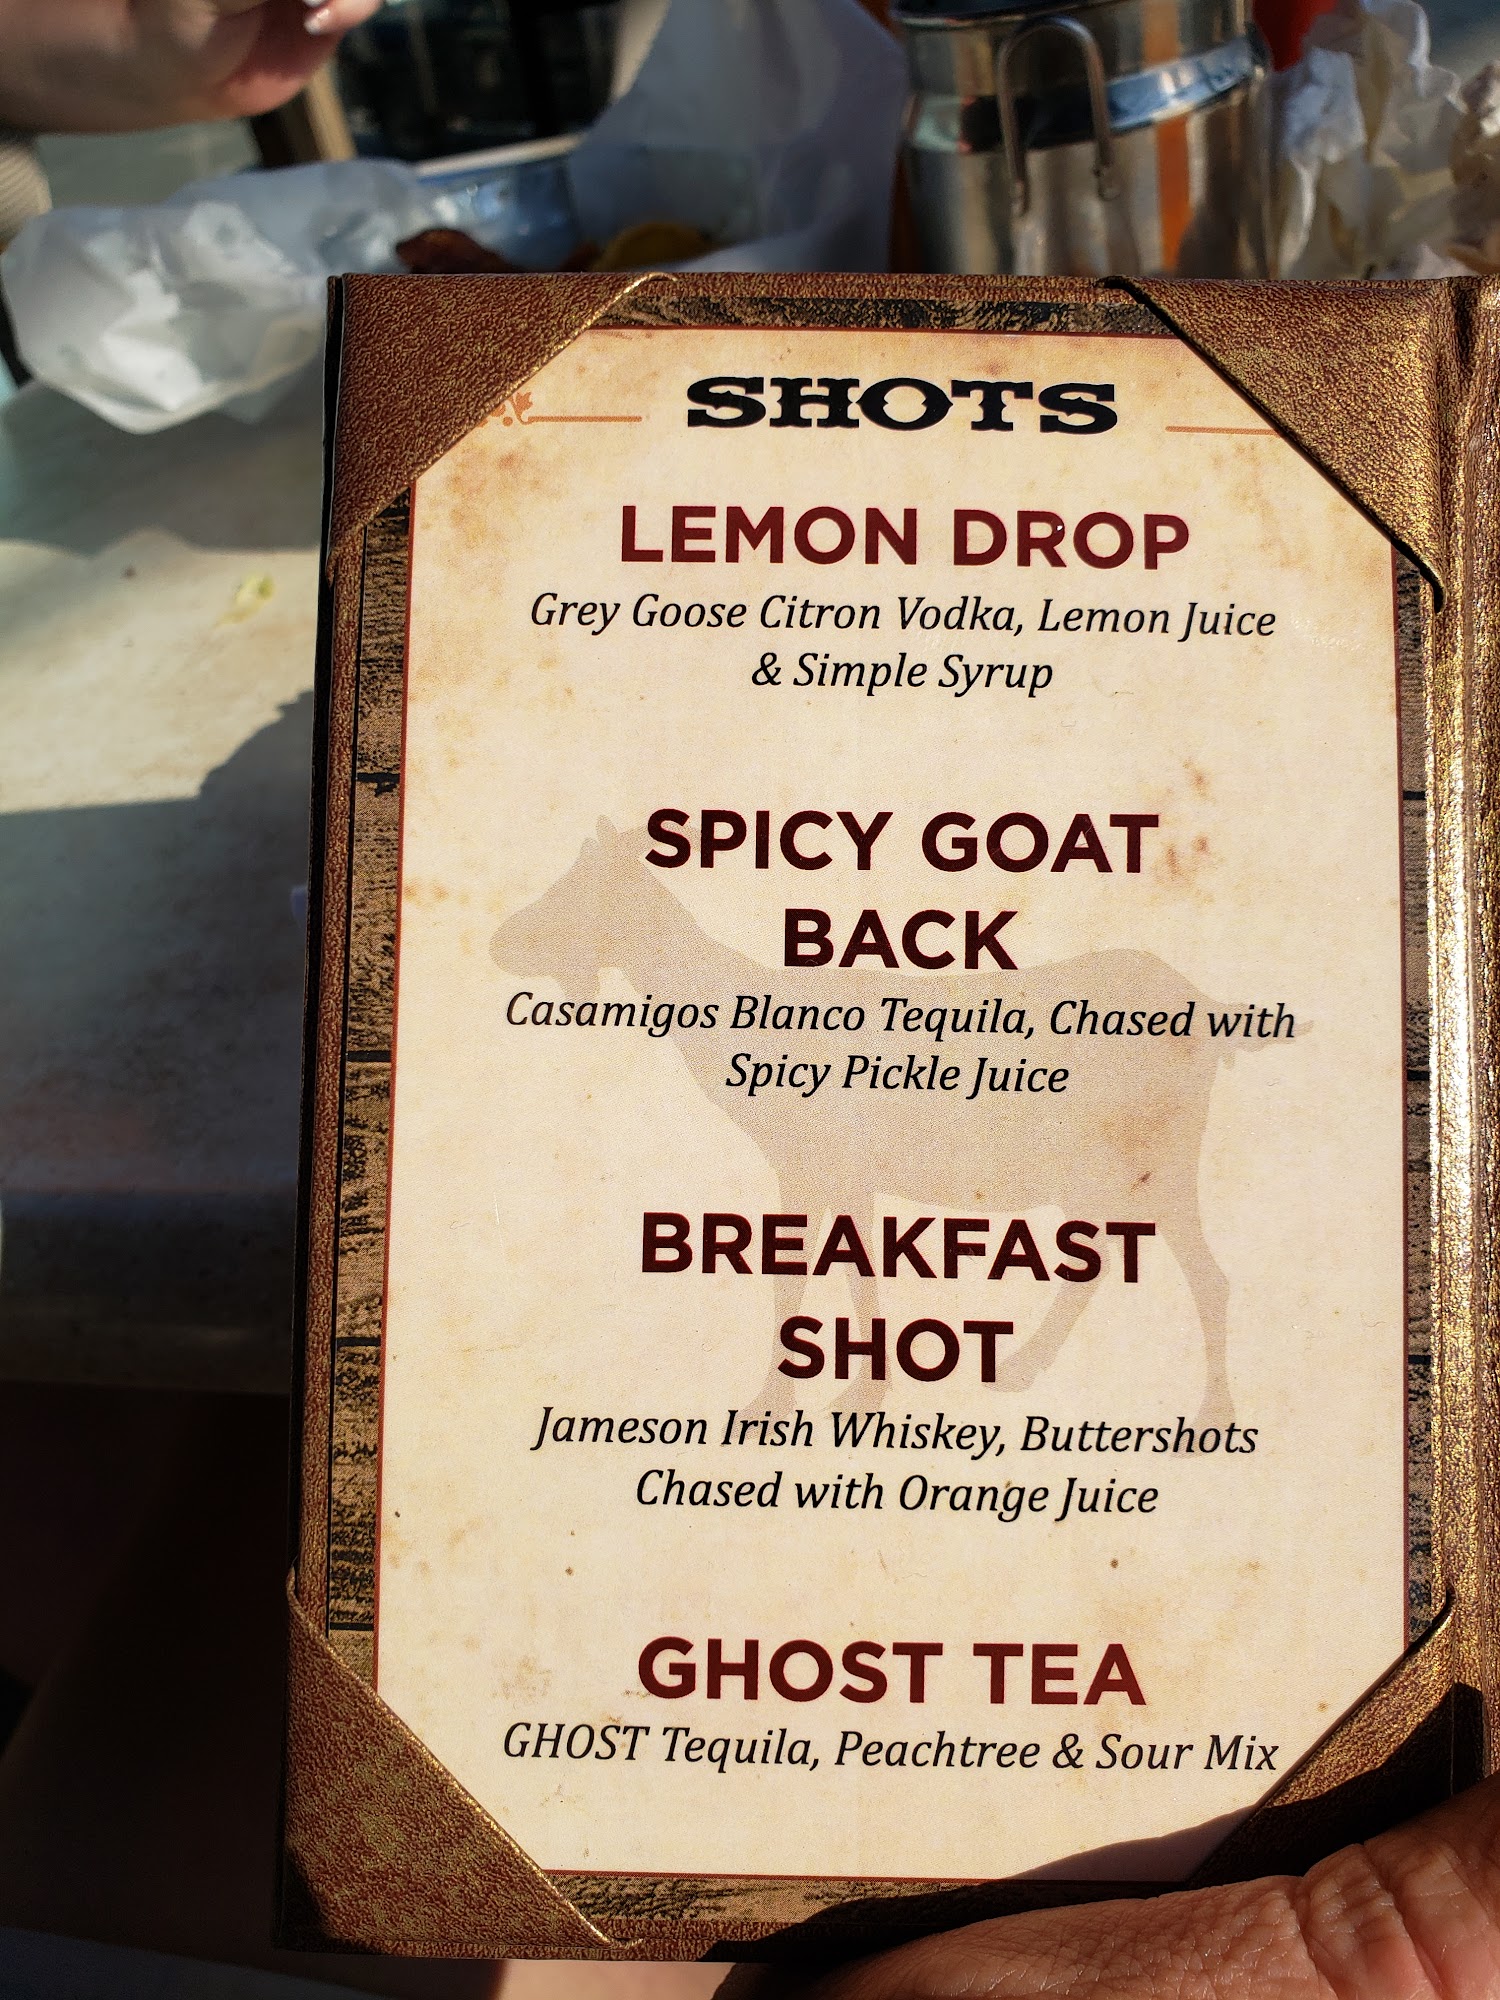 SHOTS
LEMON DROP
Grey Goose Citron Vodka, Lemon Juice
& Simple Syrup
SPICY GOAT
BACK
Casamigos Blanco Tequila, Chased with
Spicy Pickle Juice
BREAKFAST
SHOT
Jameson Irish Whiskey, Buttershots
Chased with Orange Juice
GHOST TEA
GHOST Tequila, Peachtree & Sour Mix